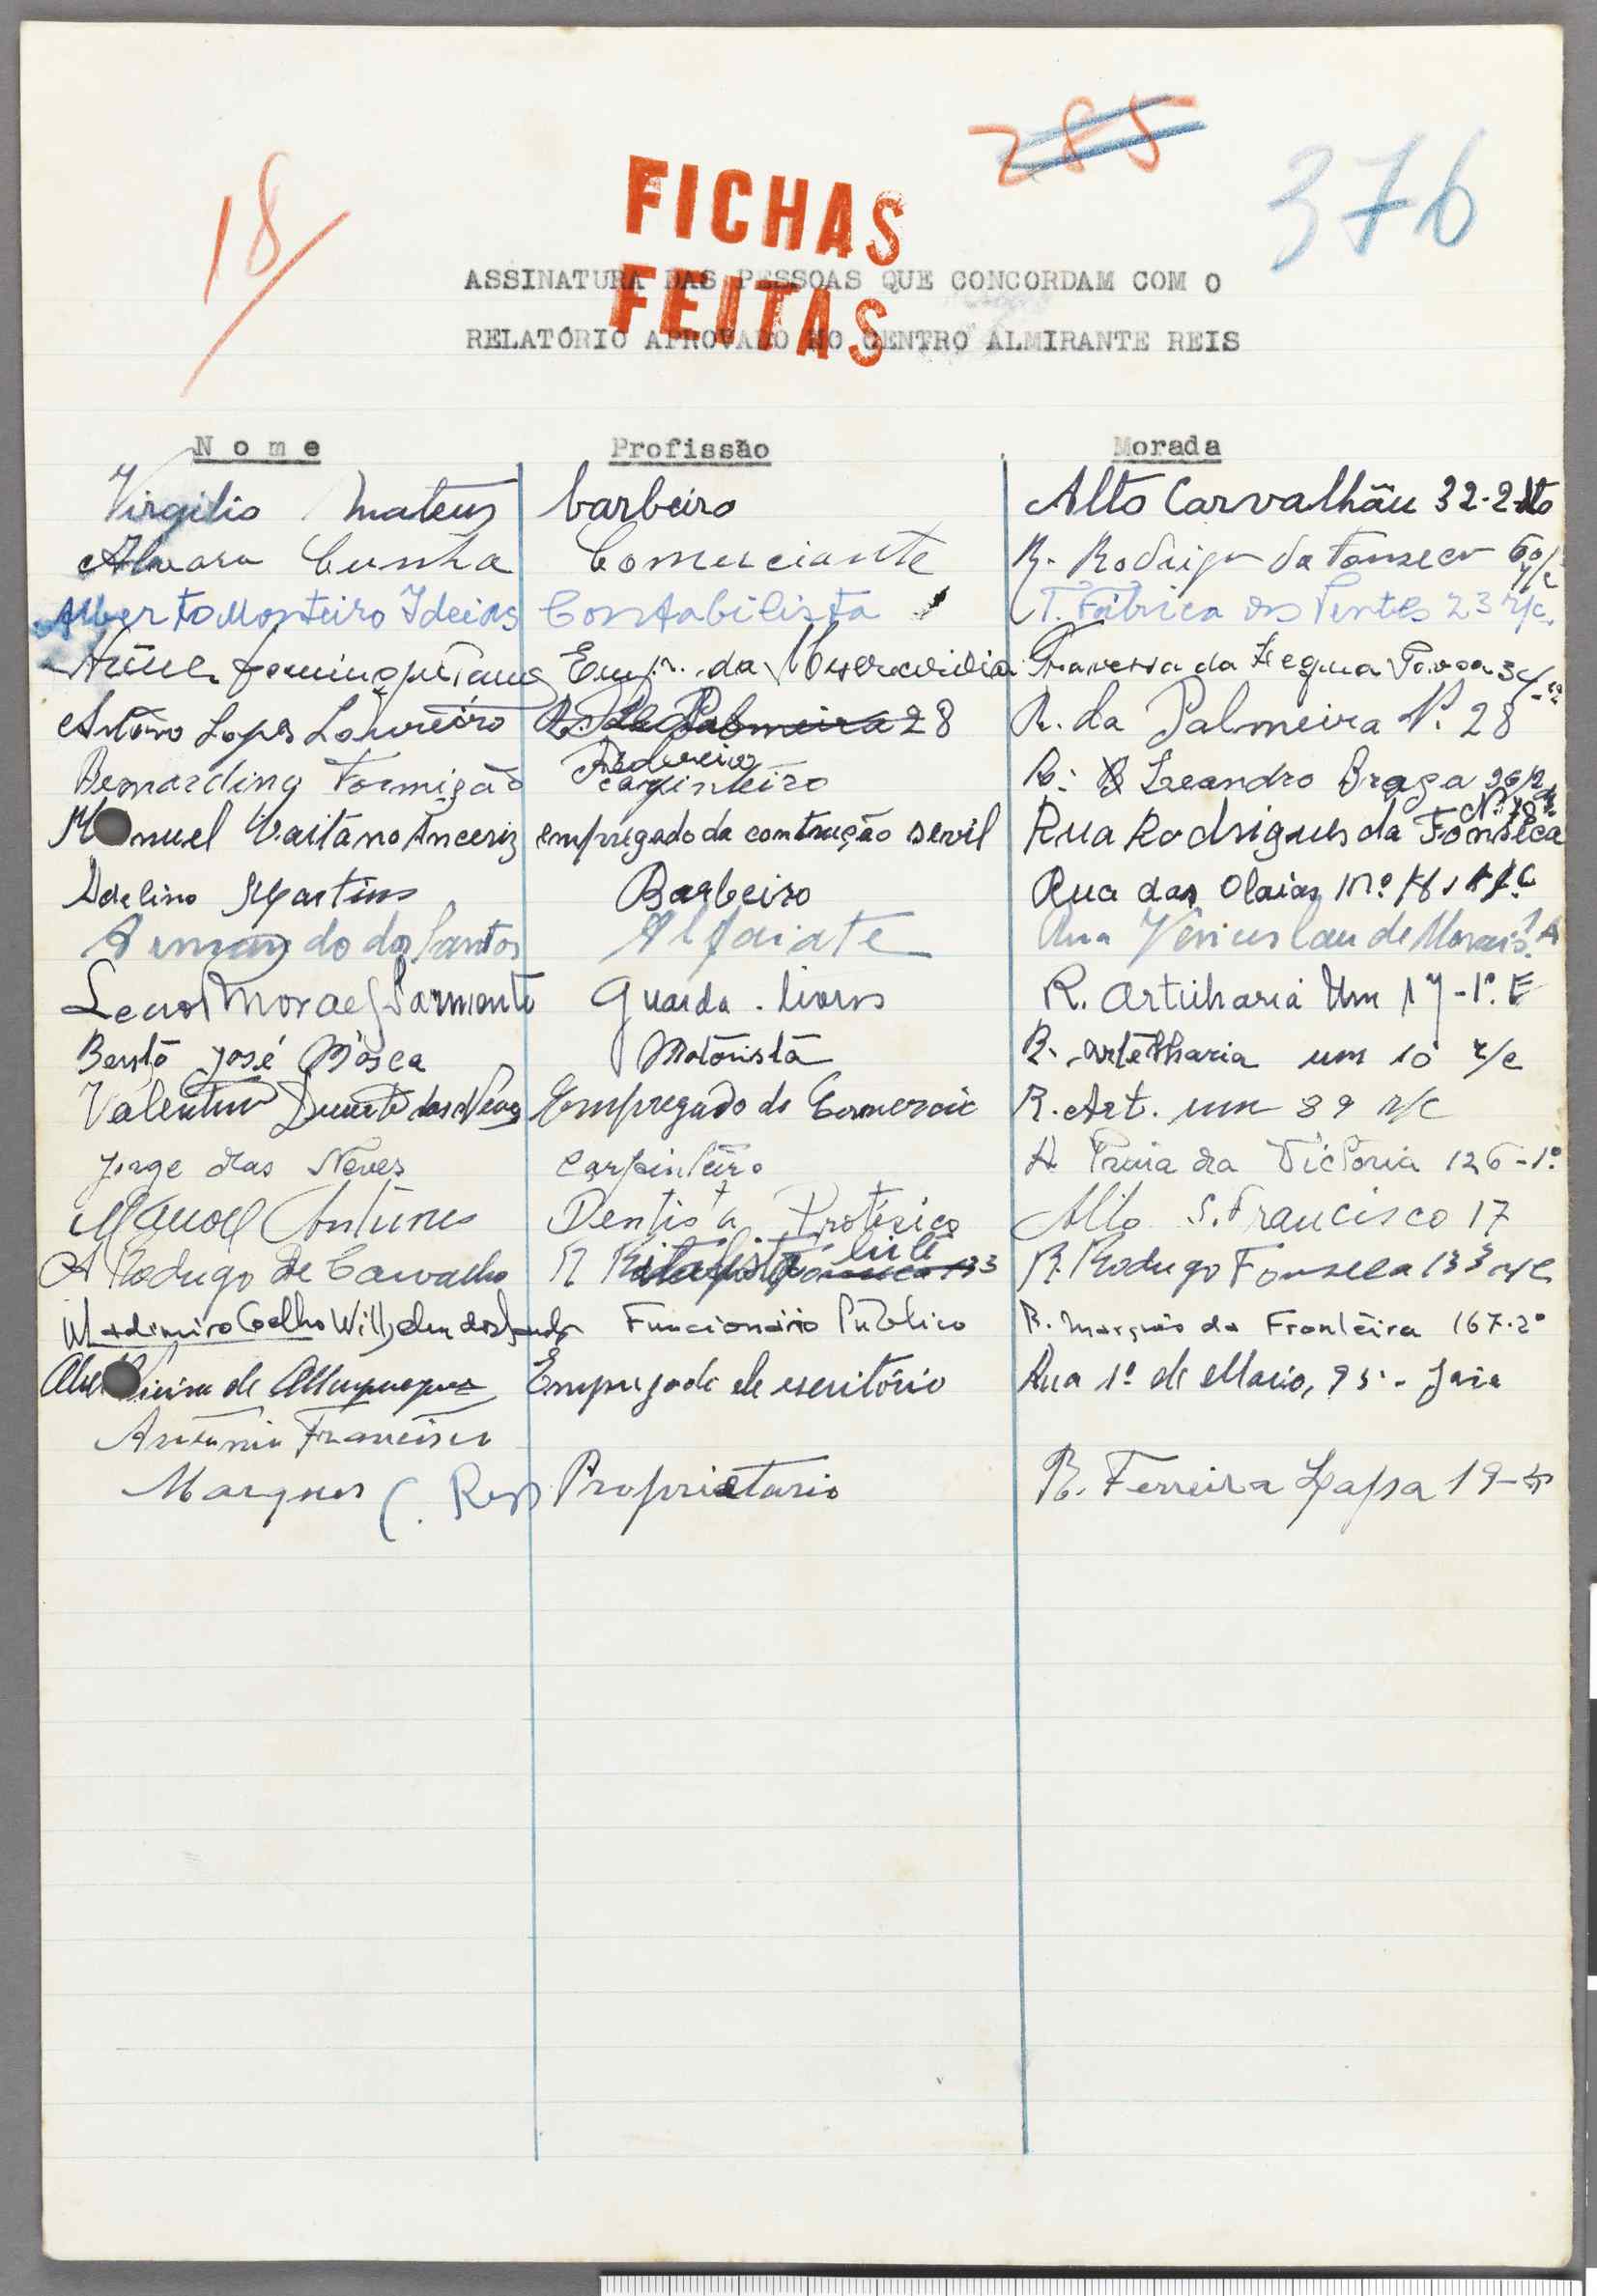 285
376
18
FICHAS
FEITAS
ASSINATURA DAS PESSOAS QUE CONCORDAM COM O
RELATÓRIO APROVADO NO CENTRO ALMIRANTE REIS
Nome Profissão Morada
Virgilio Mateus barbeiro Alto Carvalhãu 32-2-
Alvaro Cunha Comerciante R. Rodrigo da Fonseca 60 r/c
Alberto Monteiro Ideias Contabilista T. Fábrica dos Pentes 23 r/c.
da Travessa da Legua 34
António Lopes Loureiro 28 R. da Palmeira Nº 28
Bernardino Formigão carpinteiro R. Leandro Braga
Manuel Caitano empregado da contrução sevil Rua Rodrigues da Fonseca
Adelino Martins Barbeiro Rua das Olaias nº
Armando dos Santos Alfaiate Rua Venceslau de Morais
Moraes Sarmento Guarda-livros R. Artilharia Um 17-1º E
Bento José Mosca Motorista R. Artelharia um 10 r/c
Valentim Duarte das Neves Empregado do Comercio R. Art. um 89 r/c
Jorge das Neves Carpinteiro Praia da Victoria 126-1º
Manoel Antunes Dentista Protésico Alto S. Francisco 17
A Rodrigo de Carvalho R 133 R. Rodrigo Fonseca 133 r/c
Coelho dos Funcionário Publico R. Marquês da Fronteira 167-2º
Vieira de Albuquerque Empregado de escritório Rua 1º de Maio, 95
António Francisco
Marques Proprietario R. Ferreira Lapa 19-